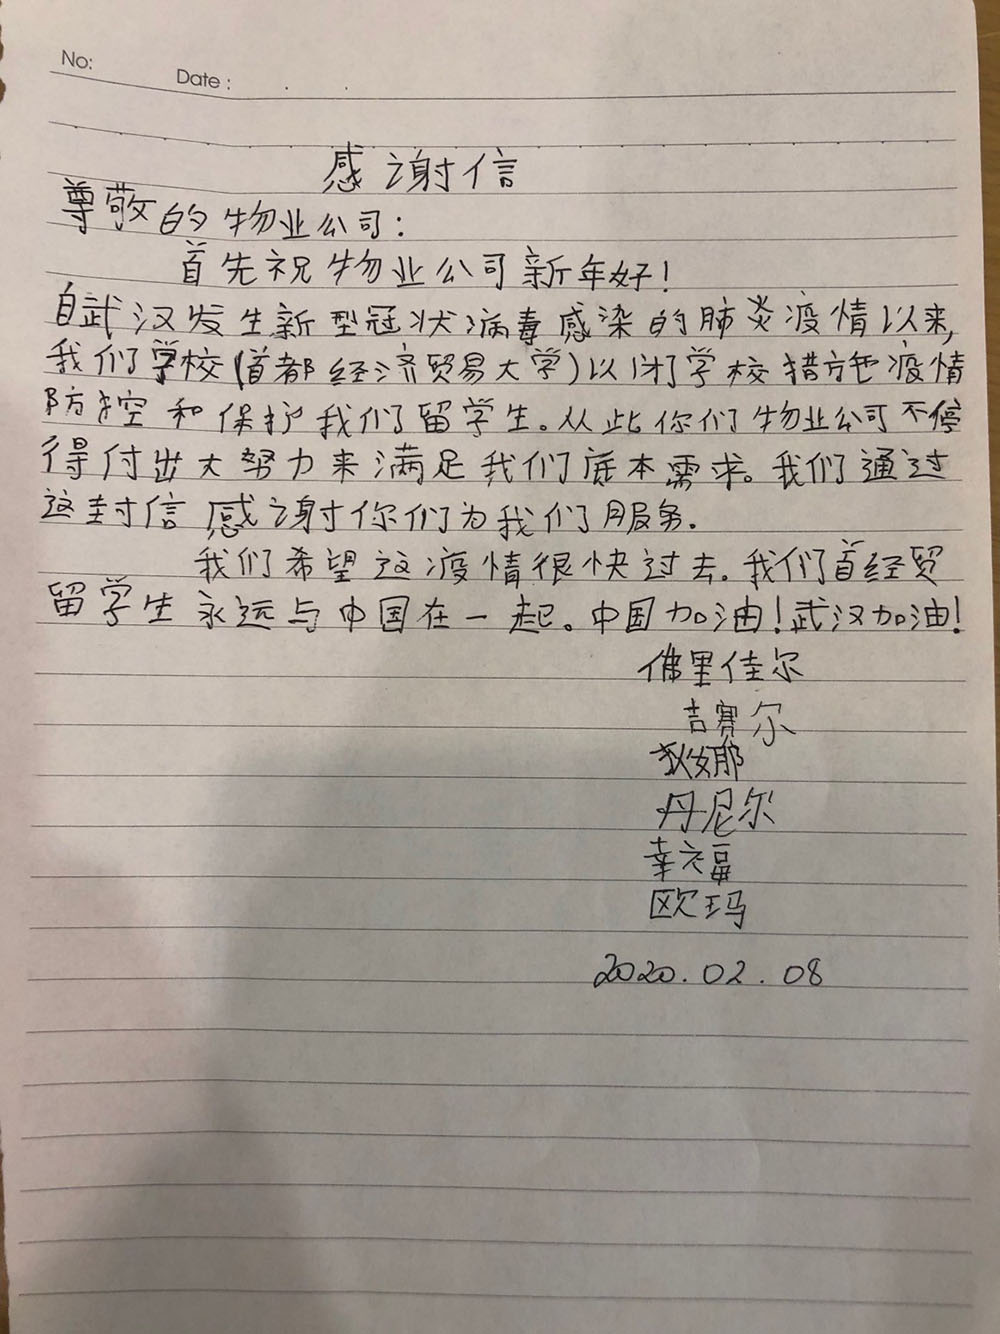 No:
Date:
感谢信
尊敬的物业公司:
首先祝物业公司新年好!
自武汉发生新型冠状病毒感染的肺炎疫情以来,
我们学校(首都经济贸易大学)以闭学校措施疫情
防控和保护我们留学生。从此你们物业公司不停
得付出大努力来满足我们底本需求。我们通过
这封信感谢你们为我们服务.
我们希望这疫情很快过去.我们首经贸
留学生永远与中国在一起。中国加油!武汉加油!
佛里佳尔
吉赛尔
狄娜
丹尼尔
幸福
欧玛
2020.02.08